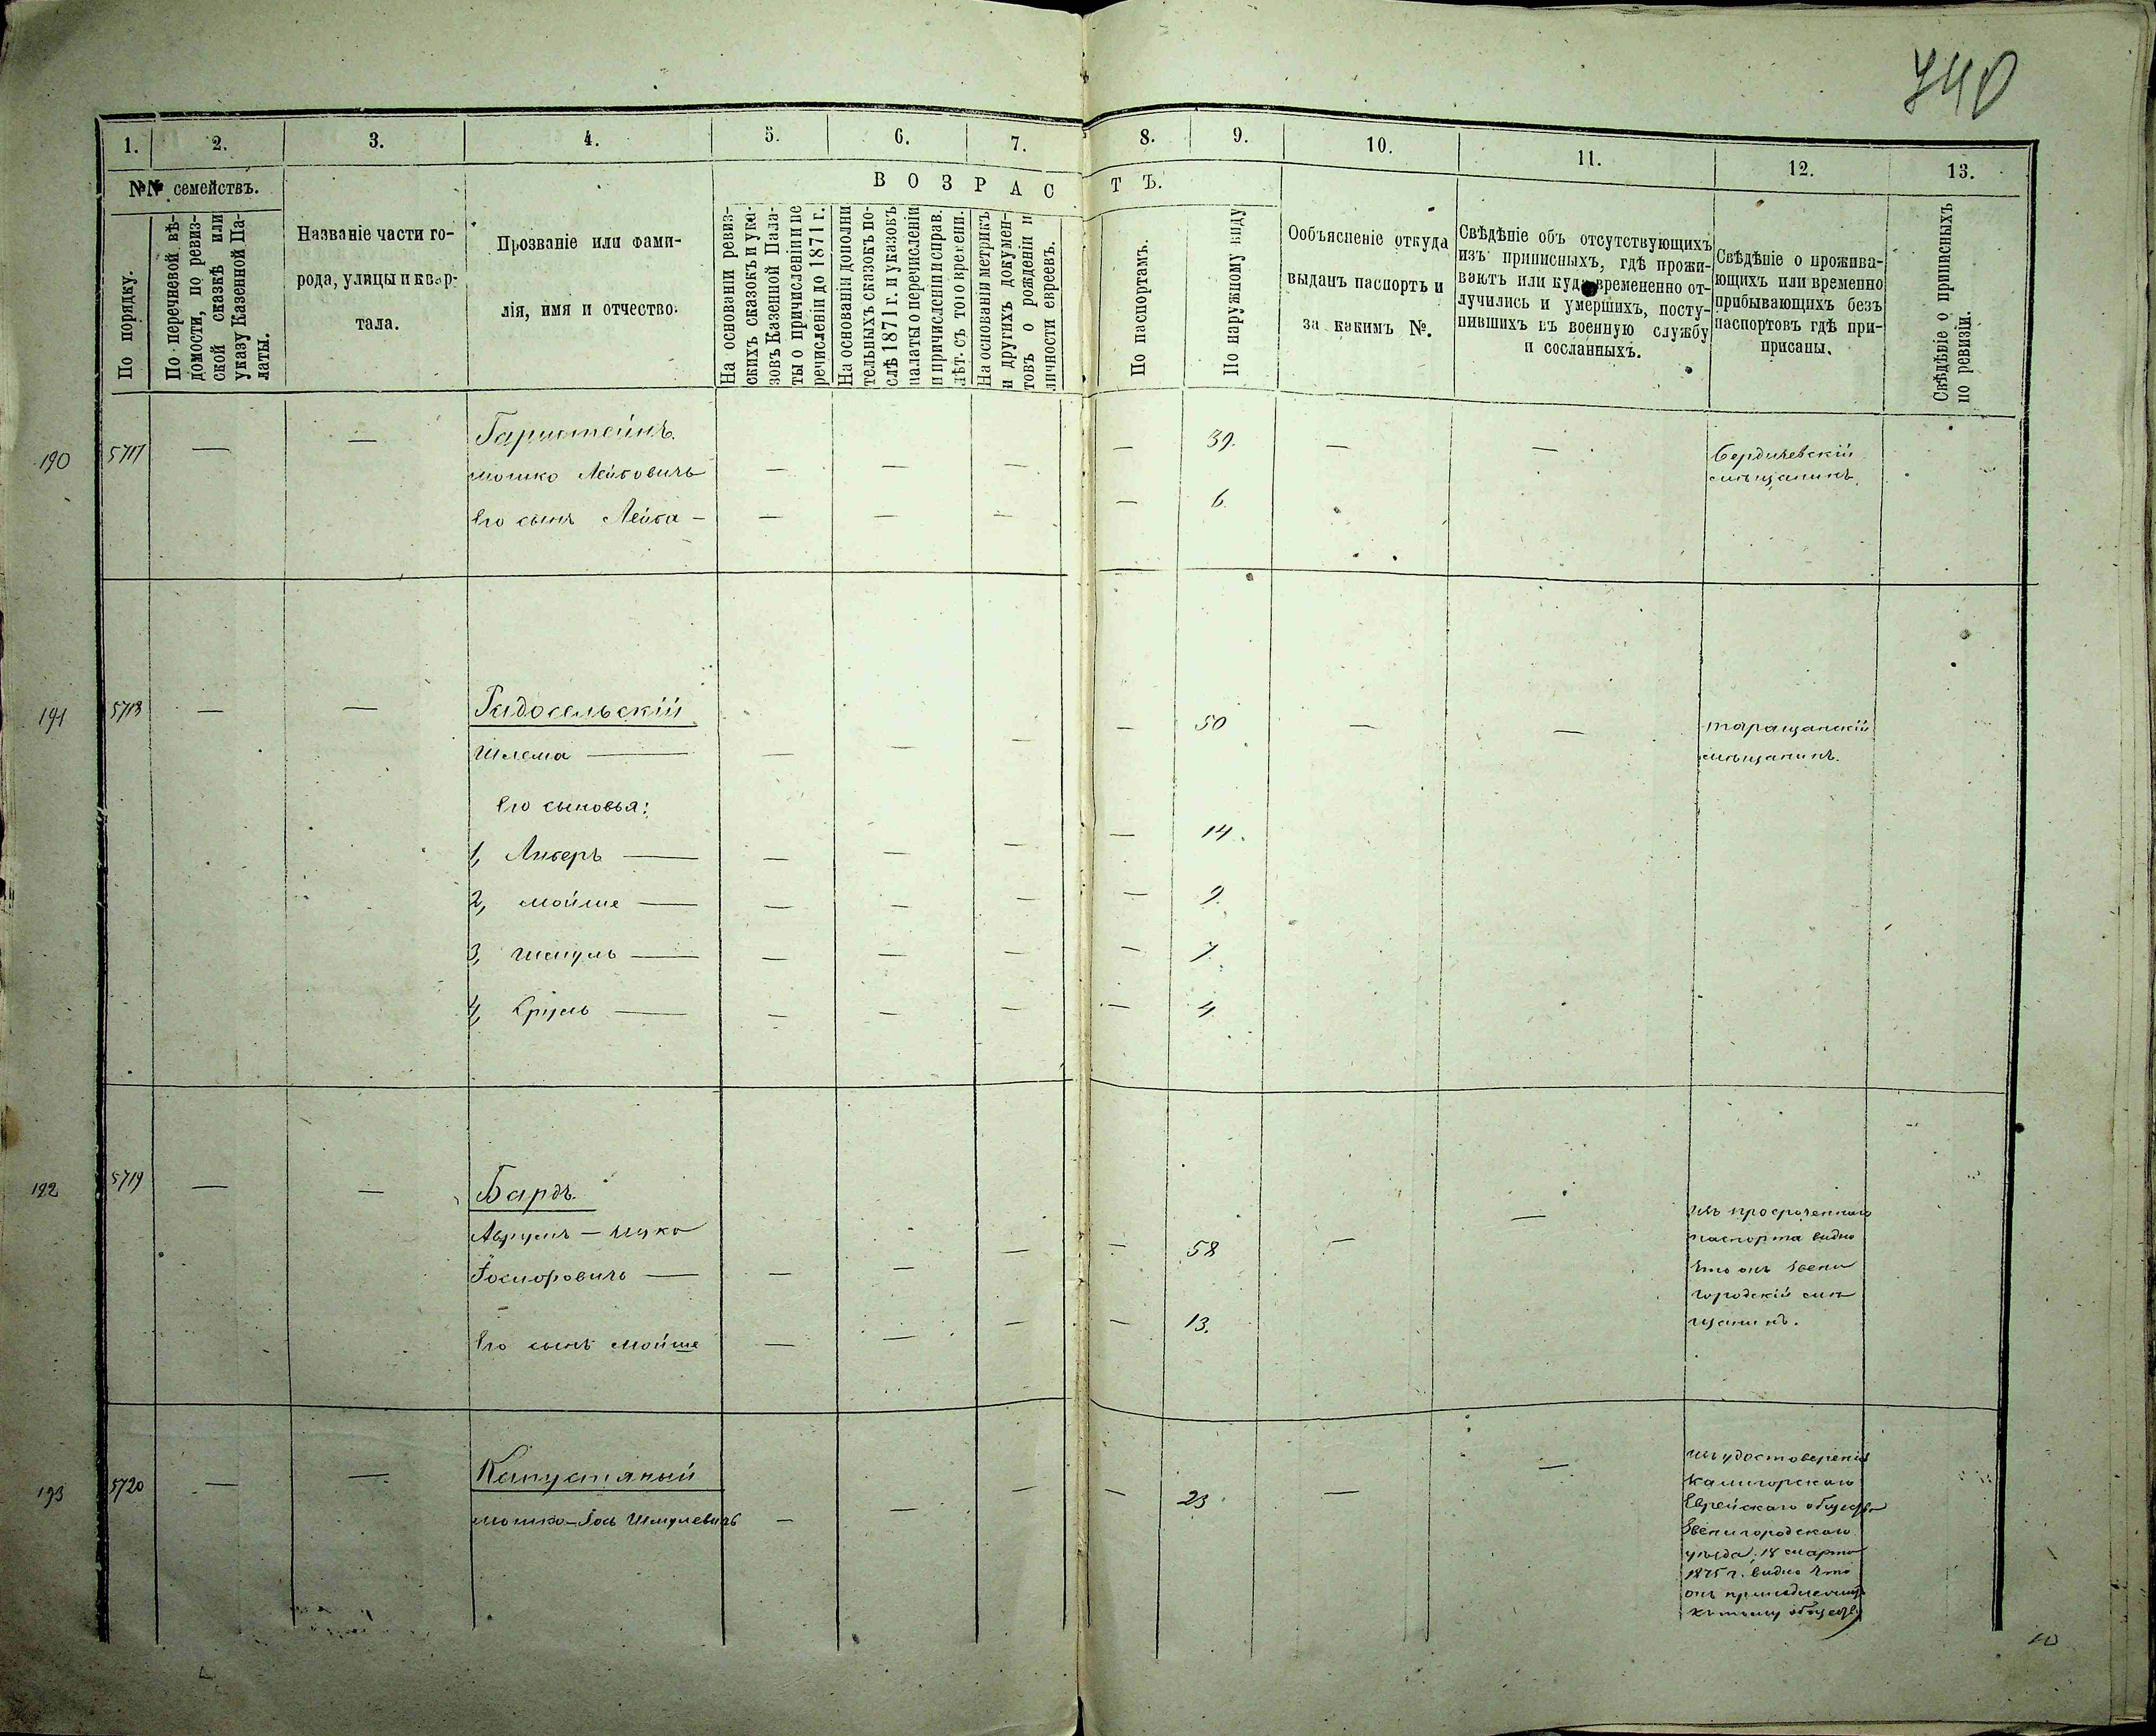 740
1. 2. 3. 4. 5. 6. 7. 8. 9. 10. 11. 12. 13.
№№ семействъ.
В О З Р А С Т Ъ.
По порядку.
По перечневой вѣ-
домости, по ревиз-
ской сказкѣ или
указу Казенной Па-
латы.
Названіе части го-
рода, улицы и квар-
тала.
Прозваніе или фами-
лія, имя и отчество.
На основаніи ревиз-
скихъ сказокъ и ука-
зовъ Казенной Пала-
ты о причисленіи и пе
речисленіи до 1871 г.
На основаніи дополни
тельныхъ сказокъ по-
слѣ 1871 г. и указовъ
палаты о перечисленіи
и причисленіи и справ.
лѣт. съ того времени.
На основаніи метрикъ
и другихъ докумен-
товъ о рожденіи и
личности евреевъ.
По паспортамъ.
По наружному виду
Ообъясненіе откуда
выданъ паспортъ и
за какимъ №.
Свѣдѣніе объ отсутствующихъ
изъ приписныхъ, гдѣ прожи-
ваютъ или куда временено от-
лучились и умершихъ, посту-
пившихъ въ военную службу
и сосланныхъ.
Свѣдѣніе о прожива-
ющихъ или временно
прибывающихъ безъ
паспортовъ гдѣ при-
присаны.
Свѣдѣніе о приписныхъ
по ревизіи.
190 5717 — — Гарштейнъ.
Мошко Лейбовичъ — — — — 39. — — Бердичевскій
мѣщанинъ.
Его сынъ Лейба — — — — — 6.
191 5718 — — Радосельскій
Шлема — — — — — 50 — — Таращанскій
мѣщанинъ.
Его сыновья:
1, Либеръ — — — — — 14.
2, Мойше — — — — — 9.
3, Шмуль — — — — — 7.
4, Сруль — — — — — 4
192 5719 — — Бардъ.
Аврумъ —
Іосиоровичъ — — — — — 58 — — Изъ просроченнаго
паспорта видно
что онъ Звени
городскій мѣ
щанинъ.
Его сынъ Мойше — — — — 13.
193 5720 — — Капустяный
Мошко-Іось Шмулевичъ — — — — 23 — — Изъ удостоверенія
Калигорскаго
Еврейскаго общества
Звенигородскаго
уѣзда, 18 марта
1875 г. видно что
онъ принадлежитъ
къ тому обществу